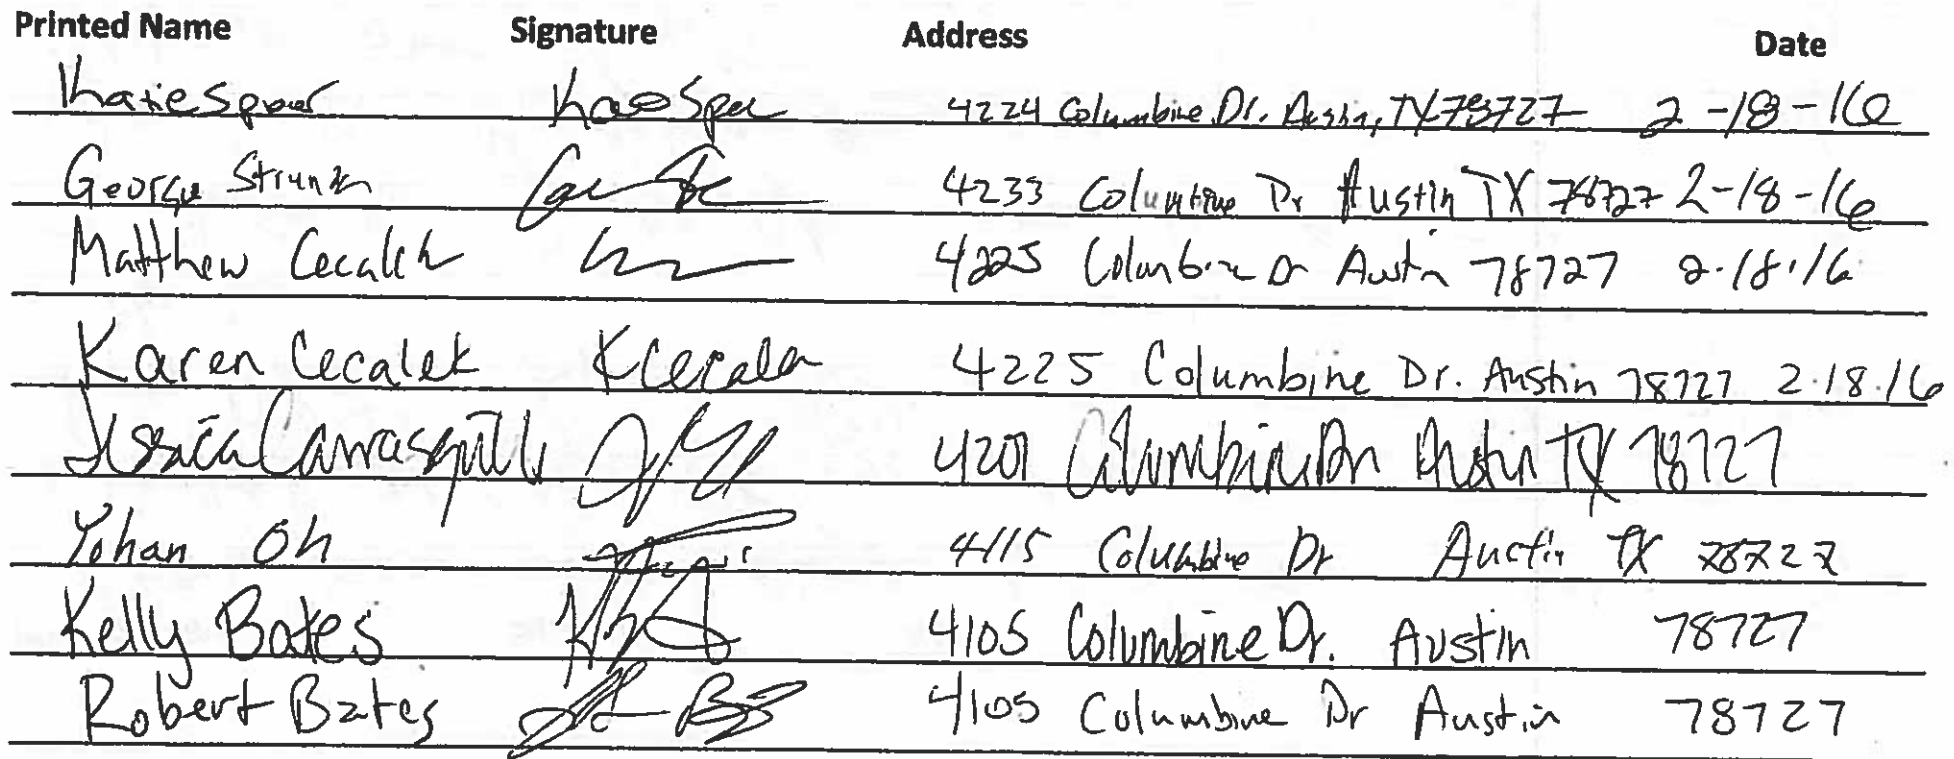 Printed Name Signature Address Date
Katie 4224 Columbine Dr. Austin, TX 78727 2-18-16
George 4233 Columbine Dr Austin TX 78727 2-18-16
Matthew Cecalek 4225 Columbine Dr Austin 78727 2.18.16
Karen Cecalek K Cecalek 4225 Columbine Dr. Austin 78727 2.18.16
Jessica Carrasquillo Columbine Dr Austin TX 78727
Yohan Oh 4115 Columbine Dr Austin TX 78727
Kelly Bates 4105 Columbine Dr. Austin 78727
Robert Bates 4105 Columbine Dr Austin 78727